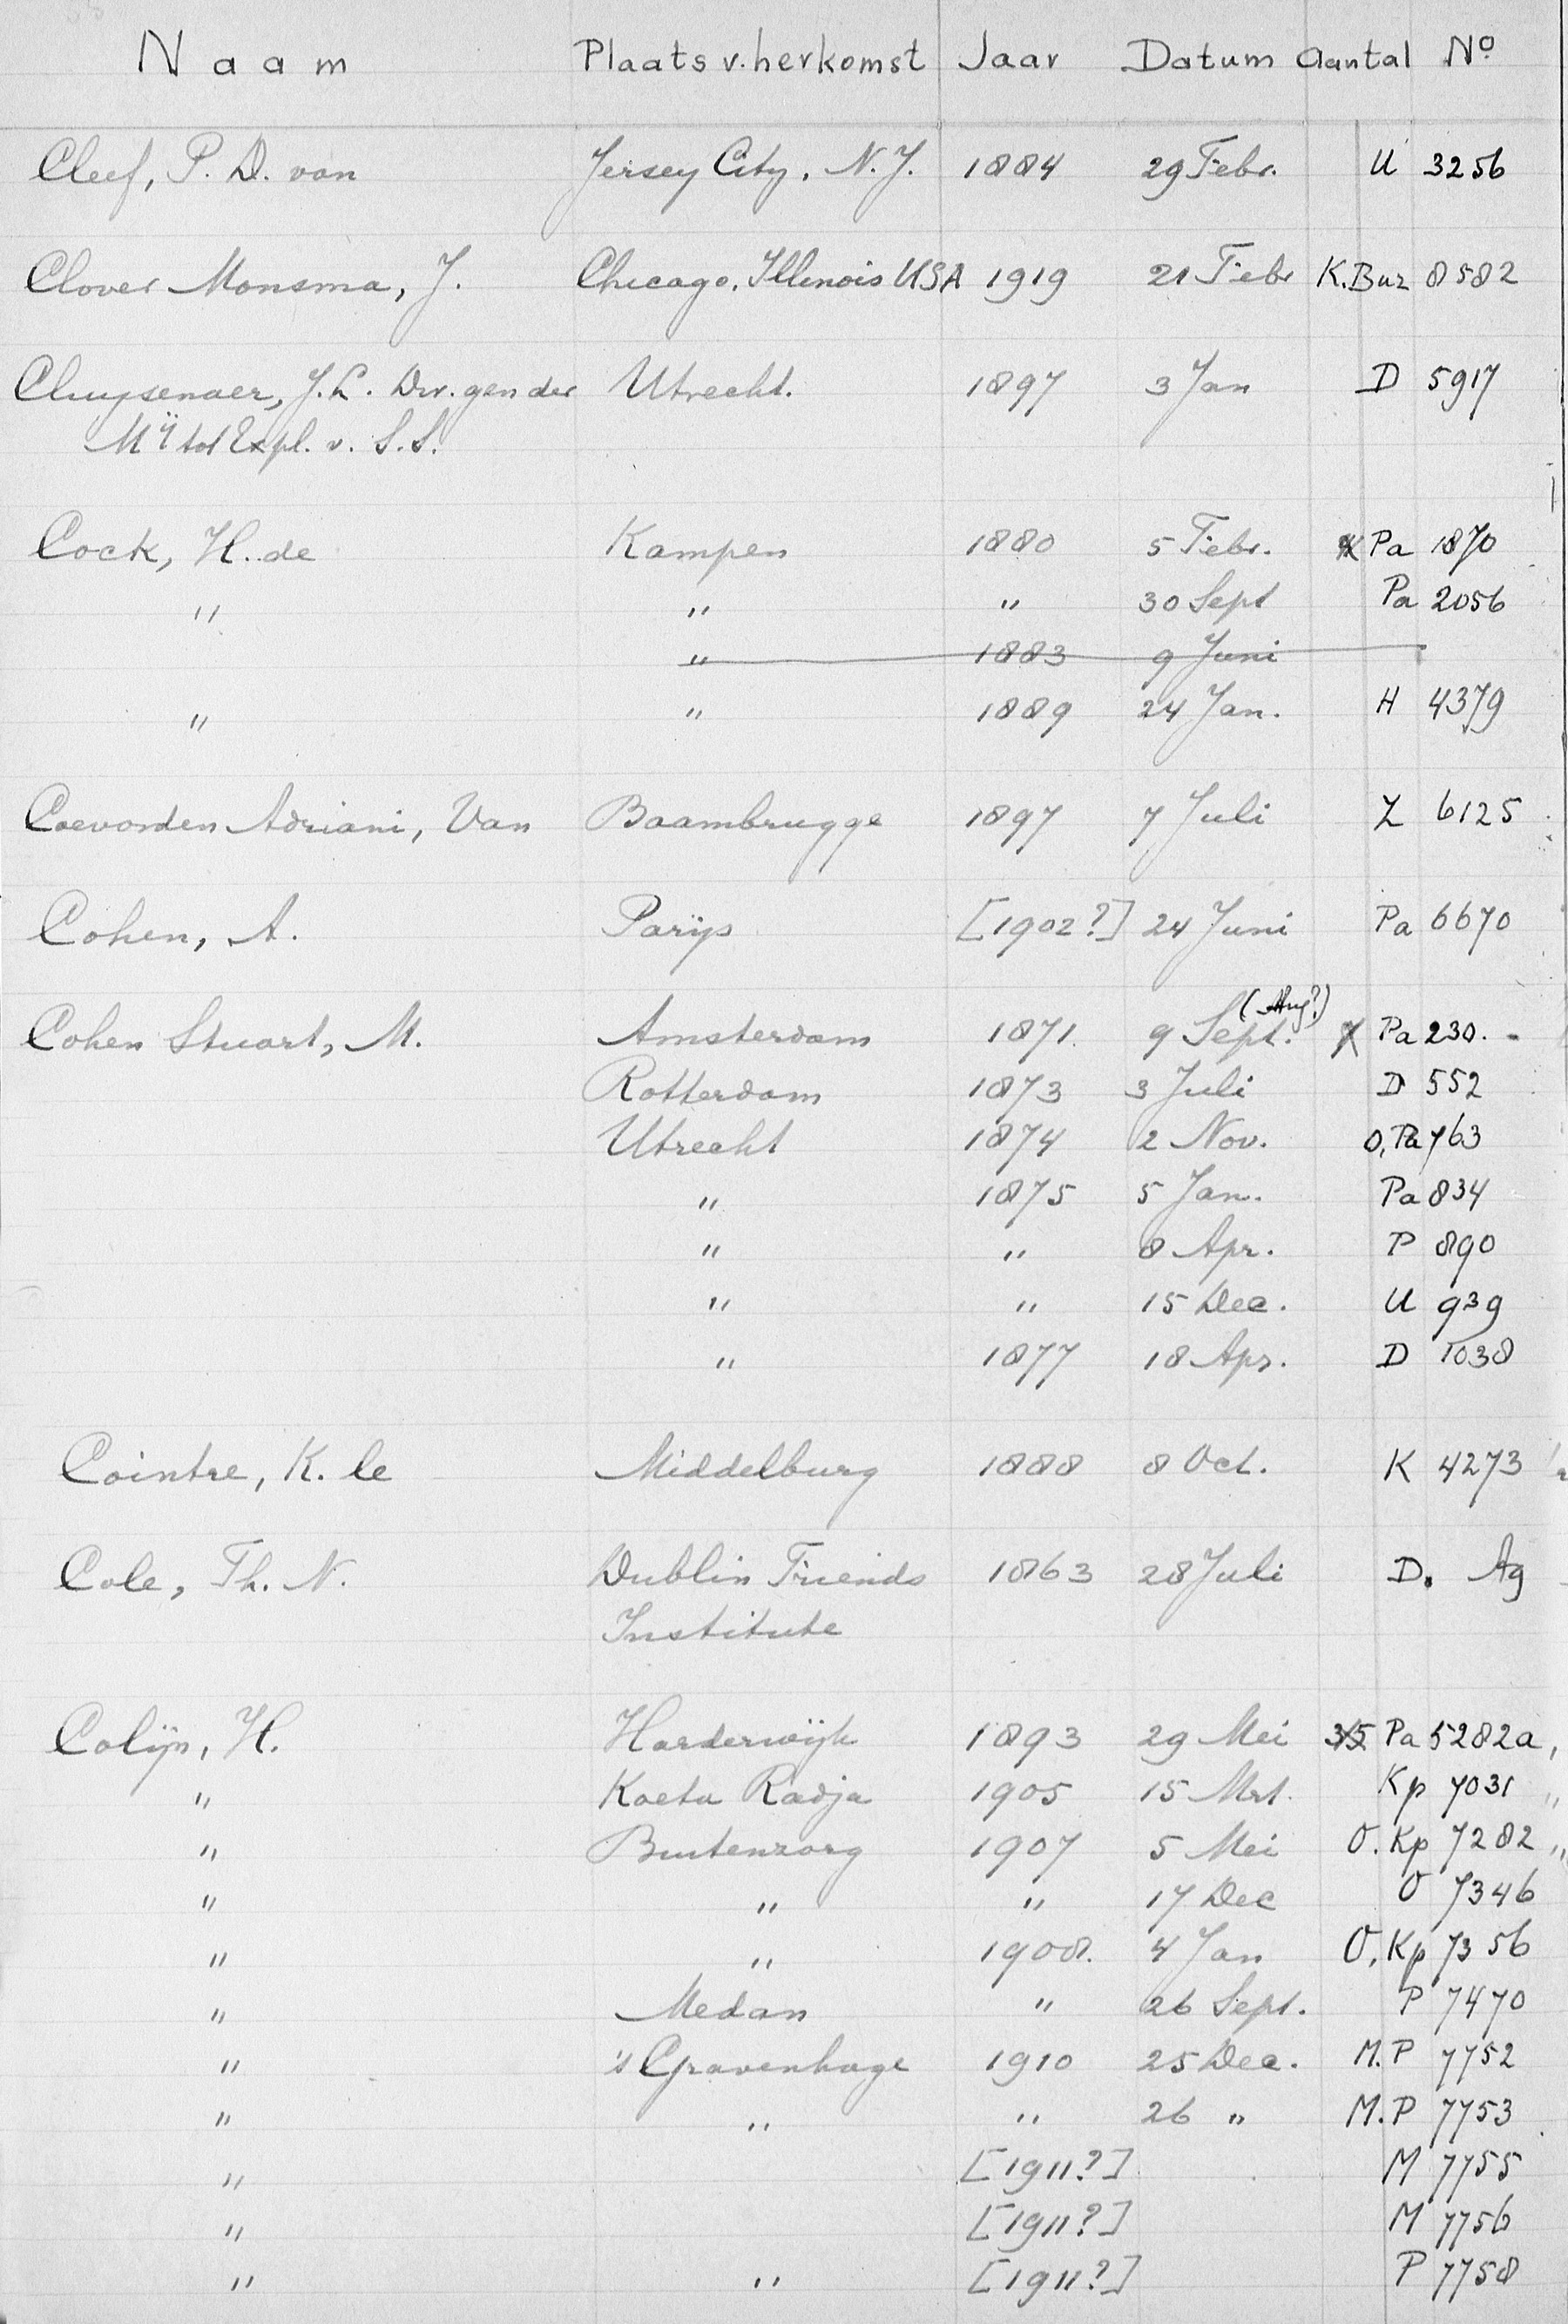 Naam Plaats v. herkomst Jaar Datum Aantal No
Cleef, P. D. van Jersey City, N.J. 1884 29 Febr. U 3256
Clover Monsma, J. Chicago, Illinois USA 1919 21 Febr K.Buz 8582
Cluysenaer, J.L. Dir. gen der Utrecht. 1897 3 Jan D 5917
Mÿ tot Expl. v. S.S.
Cock, H. de Kampen 1880 5 Febr. Pa 1870
" " " 30 Sept Pa 2056
" 1883 9 Juni
" " 1889 24 Jan. H 4379
Coevorden Adriani, Van Baambrugge 1897 7 Juli Z 6125
Cohen, A. Parÿs [1902?] 24 Juni Pa 6670
(Aug?)
Cohen Stuart, M. Amsterdam 1871. 9 Sept. Pa 230.
Rotterdam 1873 3 Juli D 552
Utrecht 1874 2 Nov. O, Pa 763
" 1875 5 Jan. Pa 834
" " 8 Apr. P 890
" " 15 Dec. U 939
" 1877 18 Apr. D 1038
Cointre, K. le Middelburg 1888 8 Oct. K 4273
Cole, Th. N. Dublin Friends 1863 28 Juli D. Ag
Institute
Colijn, H. Harderwijk 1893 29 Mei Pa 5282a,
" Koeta Radja 1905 15 Mrt. Kp 7031 "
" Buitenzorg 1907 5 Mei O. Kp 7282 "
" " " 17 Dec O 7346
" " 1908. 4 Jan O, Kp 7356
" Medan " 26 Sept. P 7470
" 's Gravenhage 1910 25 Dec. M.P 7752
" " " 26 " M.P 7753
" [1911?] M 7755
" [1911?] M 7756
" " [1911?] P 7758